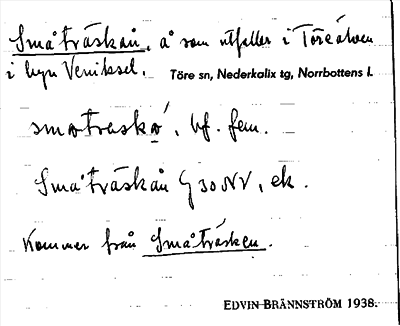 Småträskån, å som utfaller i Töreälven
i byn Verniksel. Töre sn, Nederkalix tg, Norrbottens l.
småtraskå', bf. fem.
Småträskån G 30 NV, ek.
Kommer från Småträsken.
EDVIN BRÄNNSTRÖM 1938.